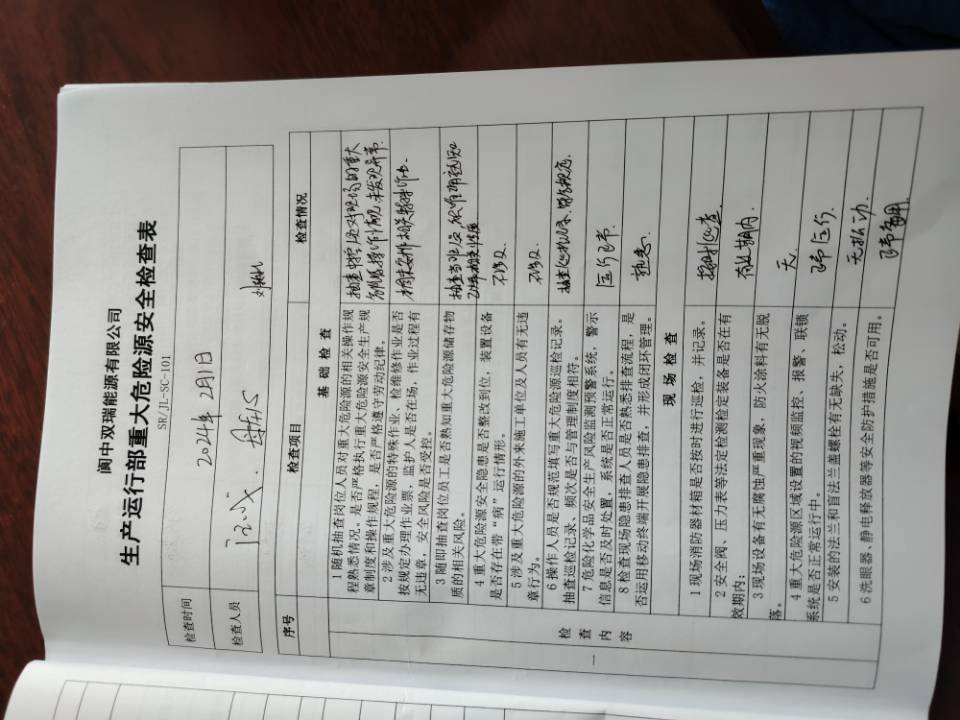 阆中双瑞能源有限公司
生产运行部重大危险源安全检查表
SR/JL-SC-101
检查时间 2024年2月1日
检查人员
序号 检查项目 检查情况
一 检查内容
基 础 检 查
1 随机抽查岗位人员对重大危险源的相关操作规
程熟悉情况。是否严格执行重大危险源安全生产规
章制度和操作规程，是否严格遵守劳动纪律。
抽查中控人员对现场的重大
2 涉及重大危险源的特殊作业、检维修作业是否
按规定办理作业票，监护人是否在场，作业过程有
无违章，安全风险是否受控。
3 随即抽查岗位员工是否熟知重大危险源储存物
质的相关风险。
4 重大危险源安全隐患是否整改到位，装置设备
是否存在带“病”运行情形。
不涉及
5 涉及重大危险源的外来施工单位及人员有无违
章行为。
不涉及
6 操作人员是否规范填写重大危险源巡检记录。
抽查巡检记录、频次是否与管理制度相符。
抽查巡检记录，填写规范。
7 危险化学品安全生产风险监测预警系统，警示
信息是否及时处置，系统是否正常运行。
运行正常
8 检查现场隐患排查人员是否熟悉排查流程，是
否运用移动终端开展隐患排查，并形成闭环管理。
熟悉.
现 场 检 查
1 现场消防器材箱是否按时进行巡检，并记录。
按时巡查.
2 安全阀、压力表等法定检测检定装备是否在有
效期内；
有效期内.
3 现场设备有无腐蚀严重现象、防火涂料有无脱
落。
无.
4 重大危险源区域设置的视频监控、报警、联锁
系统是否正常运行中。
正常运行
5 安装的法兰和盲法兰盖螺栓有无缺失，松动。
无松动.
6 洗眼器、静电释放器等安全防护措施是否可用。
正常